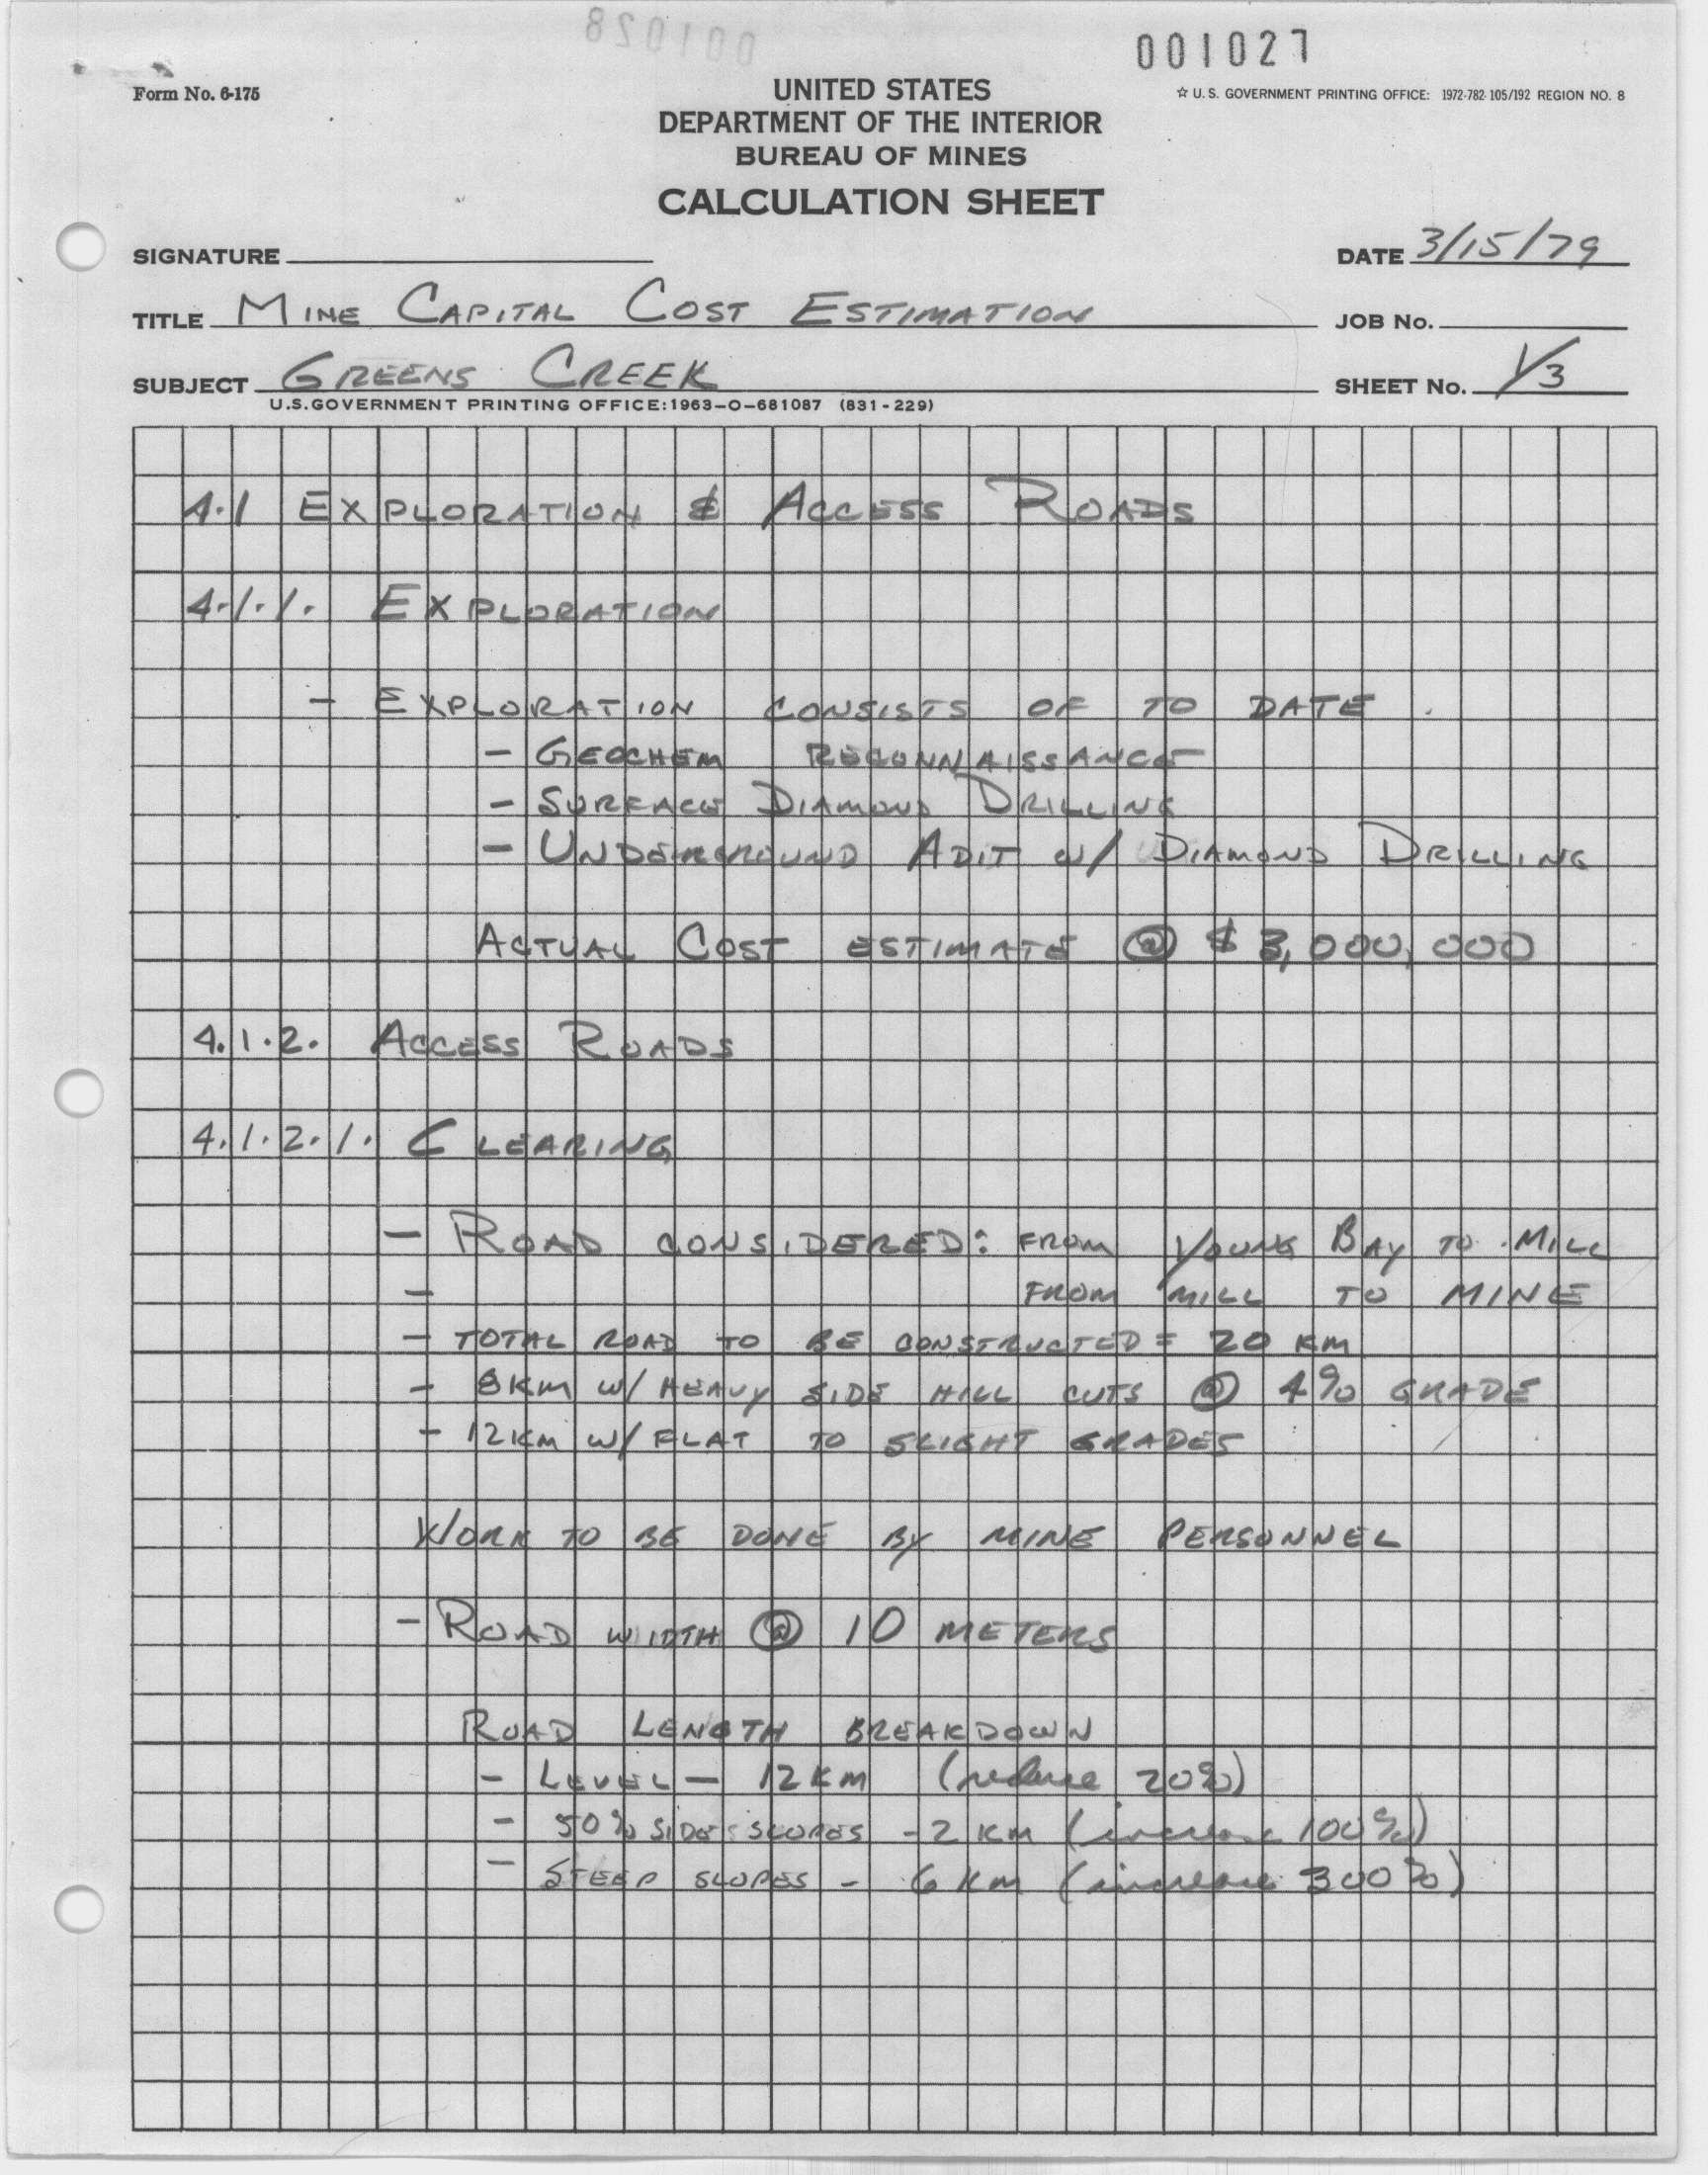 001028
001027
Form No. 6-175
UNITED STATES
DEPARTMENT OF THE INTERIOR
BUREAU OF MINES
CALCULATION SHEET
☆ U. S. GOVERNMENT PRINTING OFFICE: 1972-782-105/192 REGION NO. 8
SIGNATURE
DATE 3/15/79
TITLE MINE CAPITAL COST ESTIMATION
JOB No.
SUBJECT GREENS CREEK
SHEET No. 1/3
U.S.GOVERNMENT PRINTING OFFICE:1963-O-681087 (831-229)
4.1 EXPLORATION & ACCESS ROADS
4.1.1. EXPLORATION
- EXPLORATION CONSISTS OF TO DATE
- GEOCHEM RECONNAISSANCE
- SURFACE DIAMOND DRILLING
- UNDERGROUND ADIT W/ DIAMOND DRILLING
ACTUAL COST ESTIMATE @ $ 3,000,000
4.1.2. ACCESS ROADS
4.1.2.1. CLEARING
- ROAD CONSIDERED: FROM YOUNG BAY TO MILL
- FROM MILL TO MINE
- TOTAL ROAD TO BE CONSTRUCTED = 20 KM
- 8KM W/ HEAVY SIDE HILL CUTS @ 4% GRADE
- 12KM W/ FLAT TO SLIGHT GRADES
WORK TO BE DONE BY MINE PERSONNEL
- ROAD WIDTH @ 10 METERS
ROAD LENGTH BREAKDOWN
- LEVEL - 12 KM (reduce 20%)
- 50% SIDE SLOPES - 2 KM (increase 100%)
- STEEP SLOPES - 6 KM (increase 300%)